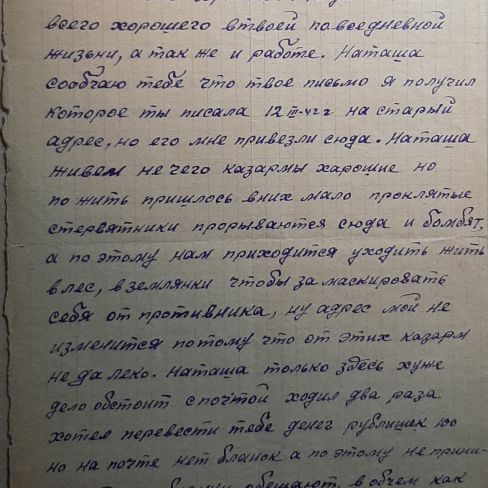 всего хорошего в твоей повседневной
жизни, а так же и работе. Наташа
сообчаю тебе что твое письмо я получил
которое ты писала 12 III-42 г на старый
адрес, но его мне привезли сюда. Наташа
живем не чего казармы харошие но
по жить пришлось в них мало проклятые
стервятники прорываются сюда и бомбят,
а по этому нам приходится уходить жить
в лес, в землянки чтобы за маскировать
себя от противника, ну адрес мой не
изменится по тому что от этих казарм
не да леко. Наташа только здесь хуже
дело обстоит с почтой ходил два раза
хотел перевести тебе денег рублишек
но на почте нет бланок а по этому не прини-
обещают, в обчем как